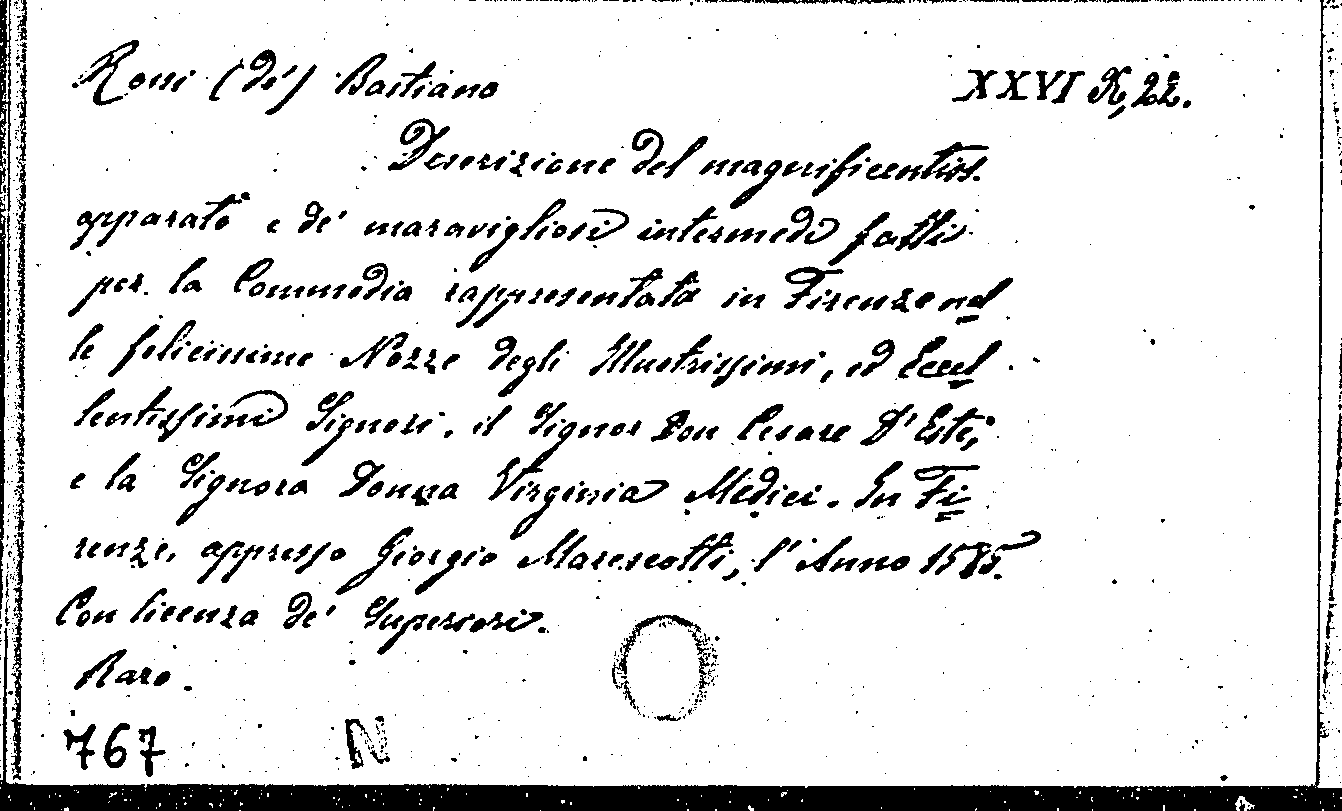 Rossi (de') Bastiano XXVI K, 22.
Descrizione del magnificentiss.
apparato e de' maravigliosi intermedi fatti
per la Commedia rappresentata in Firenze nel
le felicissime Nozze degli Illustrissimi, ed Eccel
lentissimi Signori, il Signor Don Cesare D'Este,
e la Signora Donna Virginia Medici. In Fi
renze, appresso Giorgio Marescotti, l'Anno 1585.
Con licenza de' Superiori.
Raro.
767 N